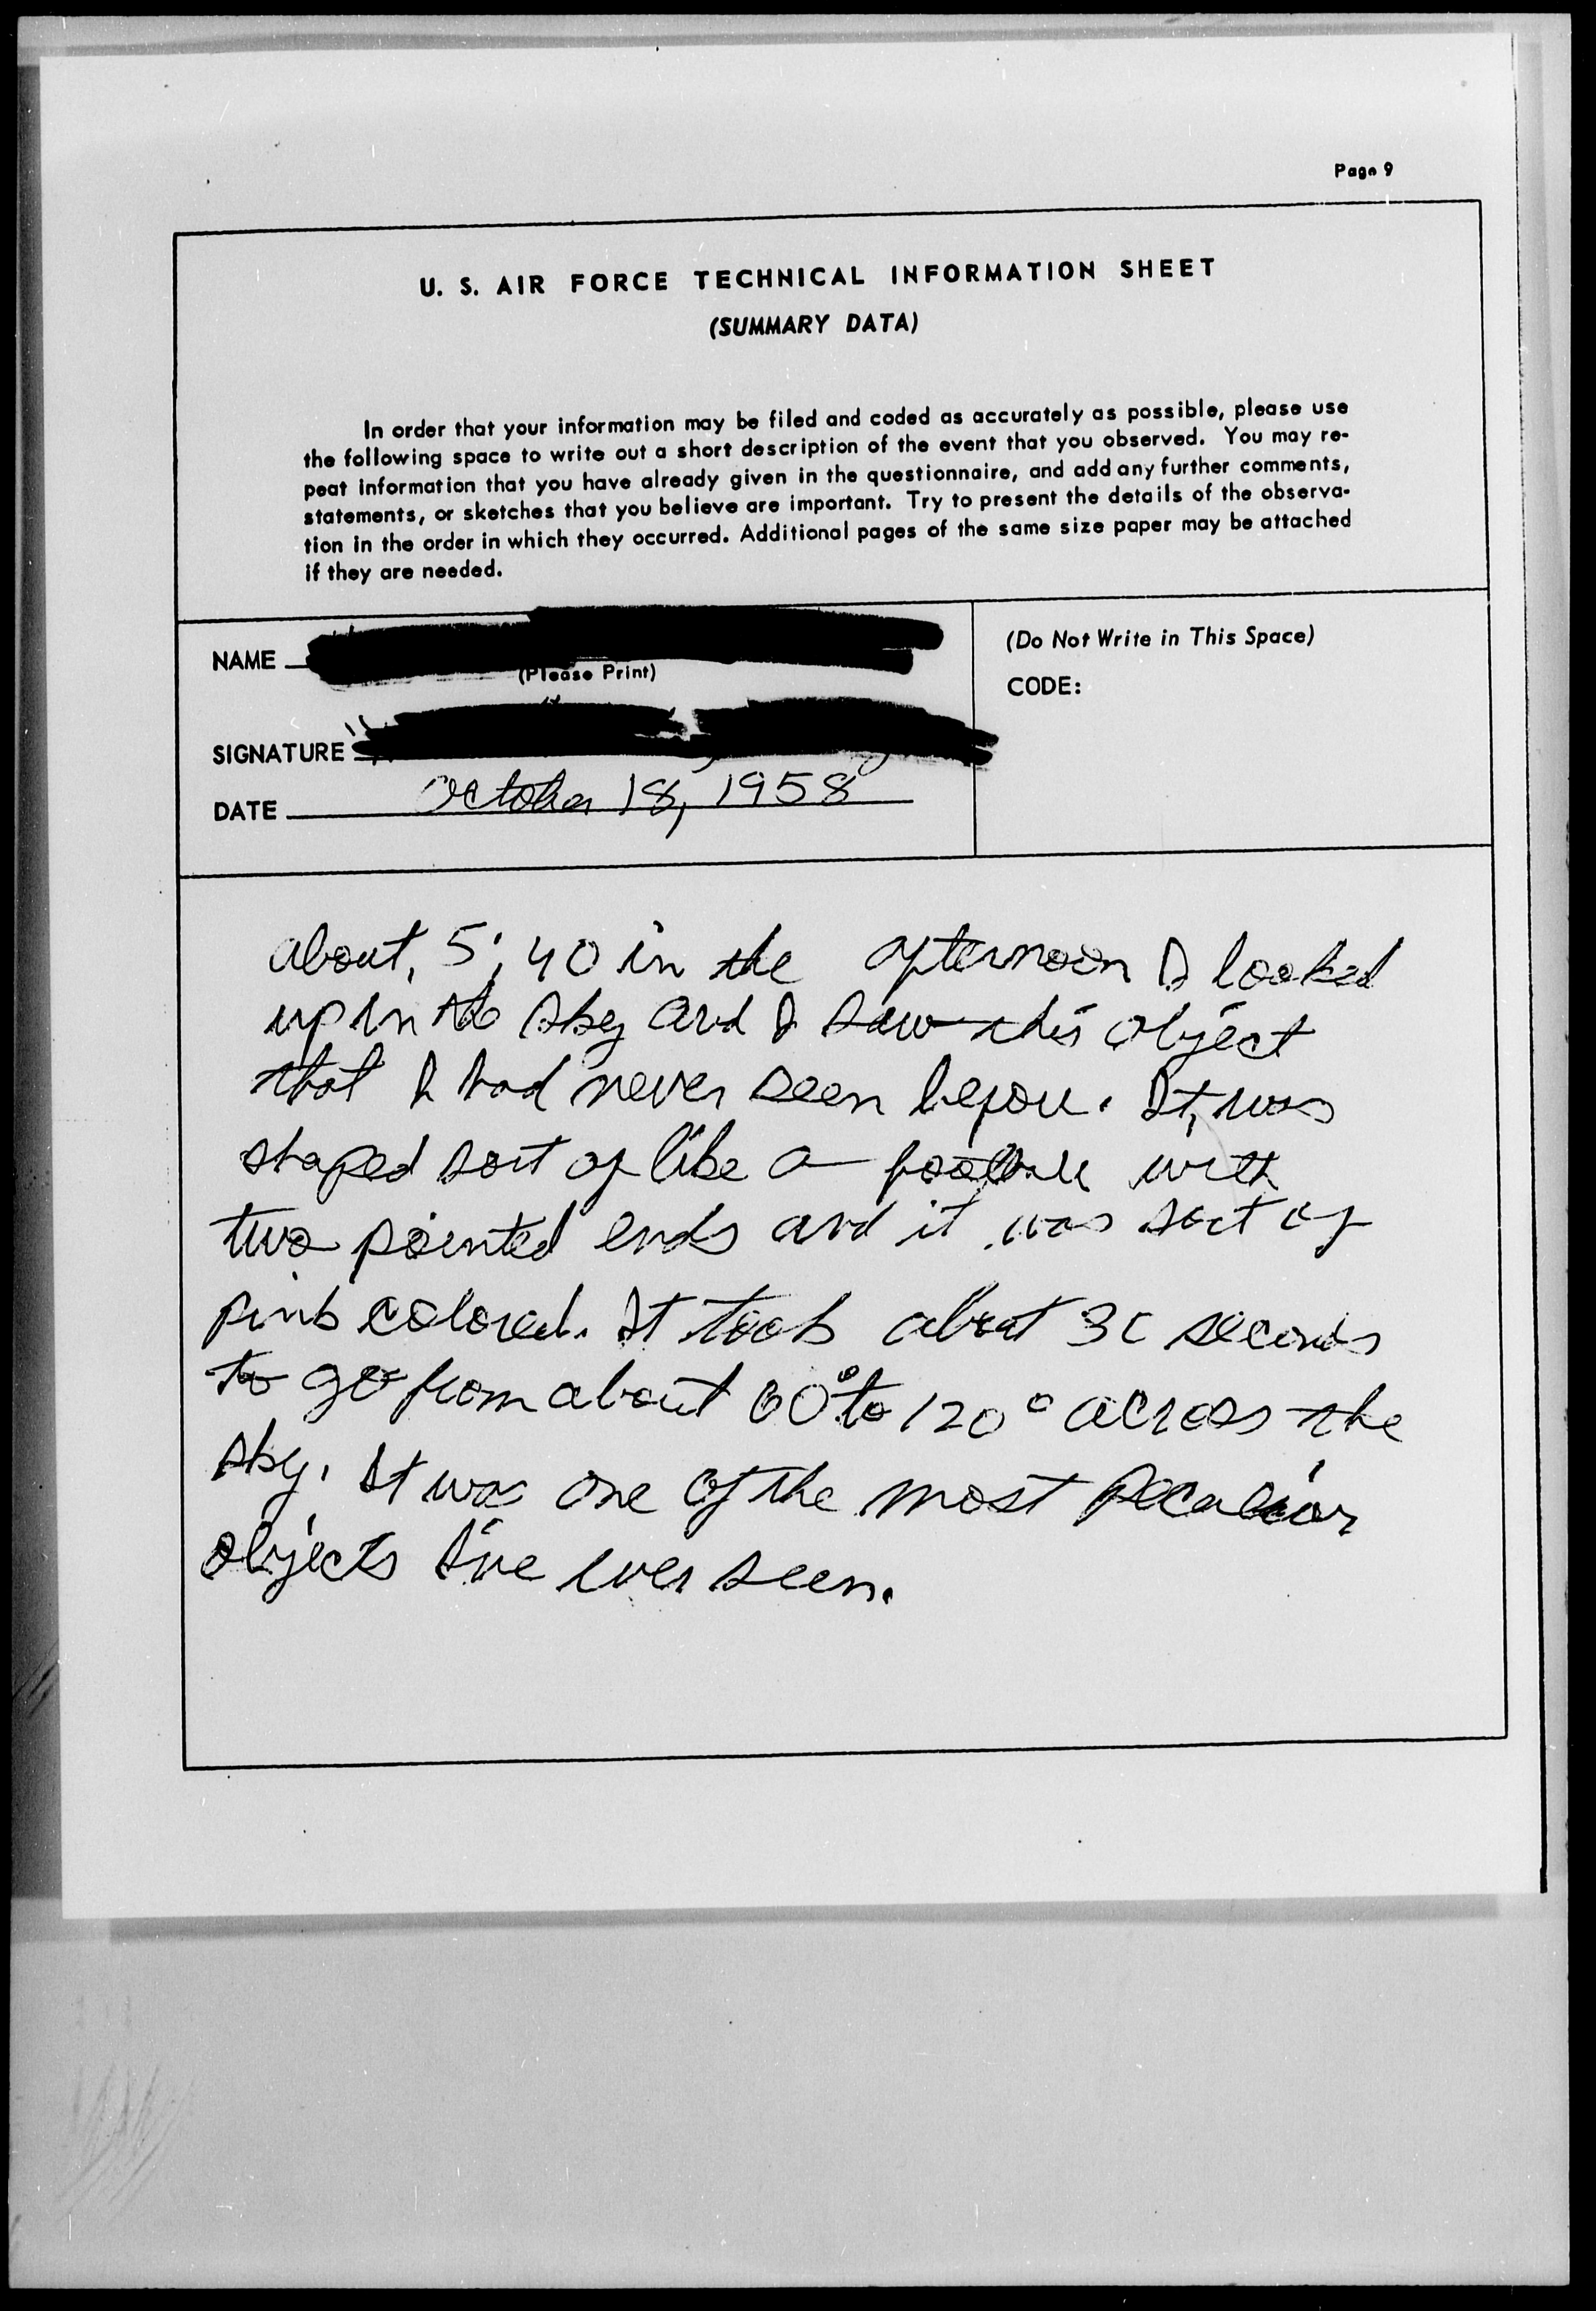 Page 9
U. S. AIR FORCE TECHNICAL INFORMATION SHEET
(SUMMARY DATA)
In order that your information may be filed and coded as accurately as possible, please use
the following space to write out a short description of the event that you observed. You may re-
peat information that you have already given in the questionnaire, and add any further comments,
statements, or sketches that you believe are important. Try to present the details of the observa-
tion in the order in which they occurred. Additional pages of the same size paper may be attached
if they are needed.
NAME
(Please Print)
SIGNATURE
DATE October 18, 1958
(Do Not Write in This Space)
CODE:
about, 5:40 in the afternoon I looked
up in the sky and I saw this object
that I had never seen before. It, was
shaped sort of like a football with
two pointed ends and it was sort of
pink colored. It took about 30 seconds
to go from about 60° to 120° across the
sky. It was one of the most peculiar
objects I've ever seen.